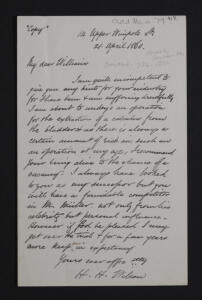 "Copy"
12 Upper Wimpole St
21 April 1860.
My dear Williams
I am quite incompetent to
give you any hints for your industry
for I have been & am suffering dreadfully
I am about to undergo an operation
for the extraction of a calculus from
the bladder & as there is always a
certain amount of risk in such an
an operation at my age I recommend
your being alive to the chance of a
vacancy. I always have looked
to you as my successor but you
will have a formidable competitor
in Mr. Müller not only from his
celebrity but personal influence.
However if God be pleased I may
get over the trial & for a few years
more keep in expectancy
Yours ever affectly
H. H. Wilson